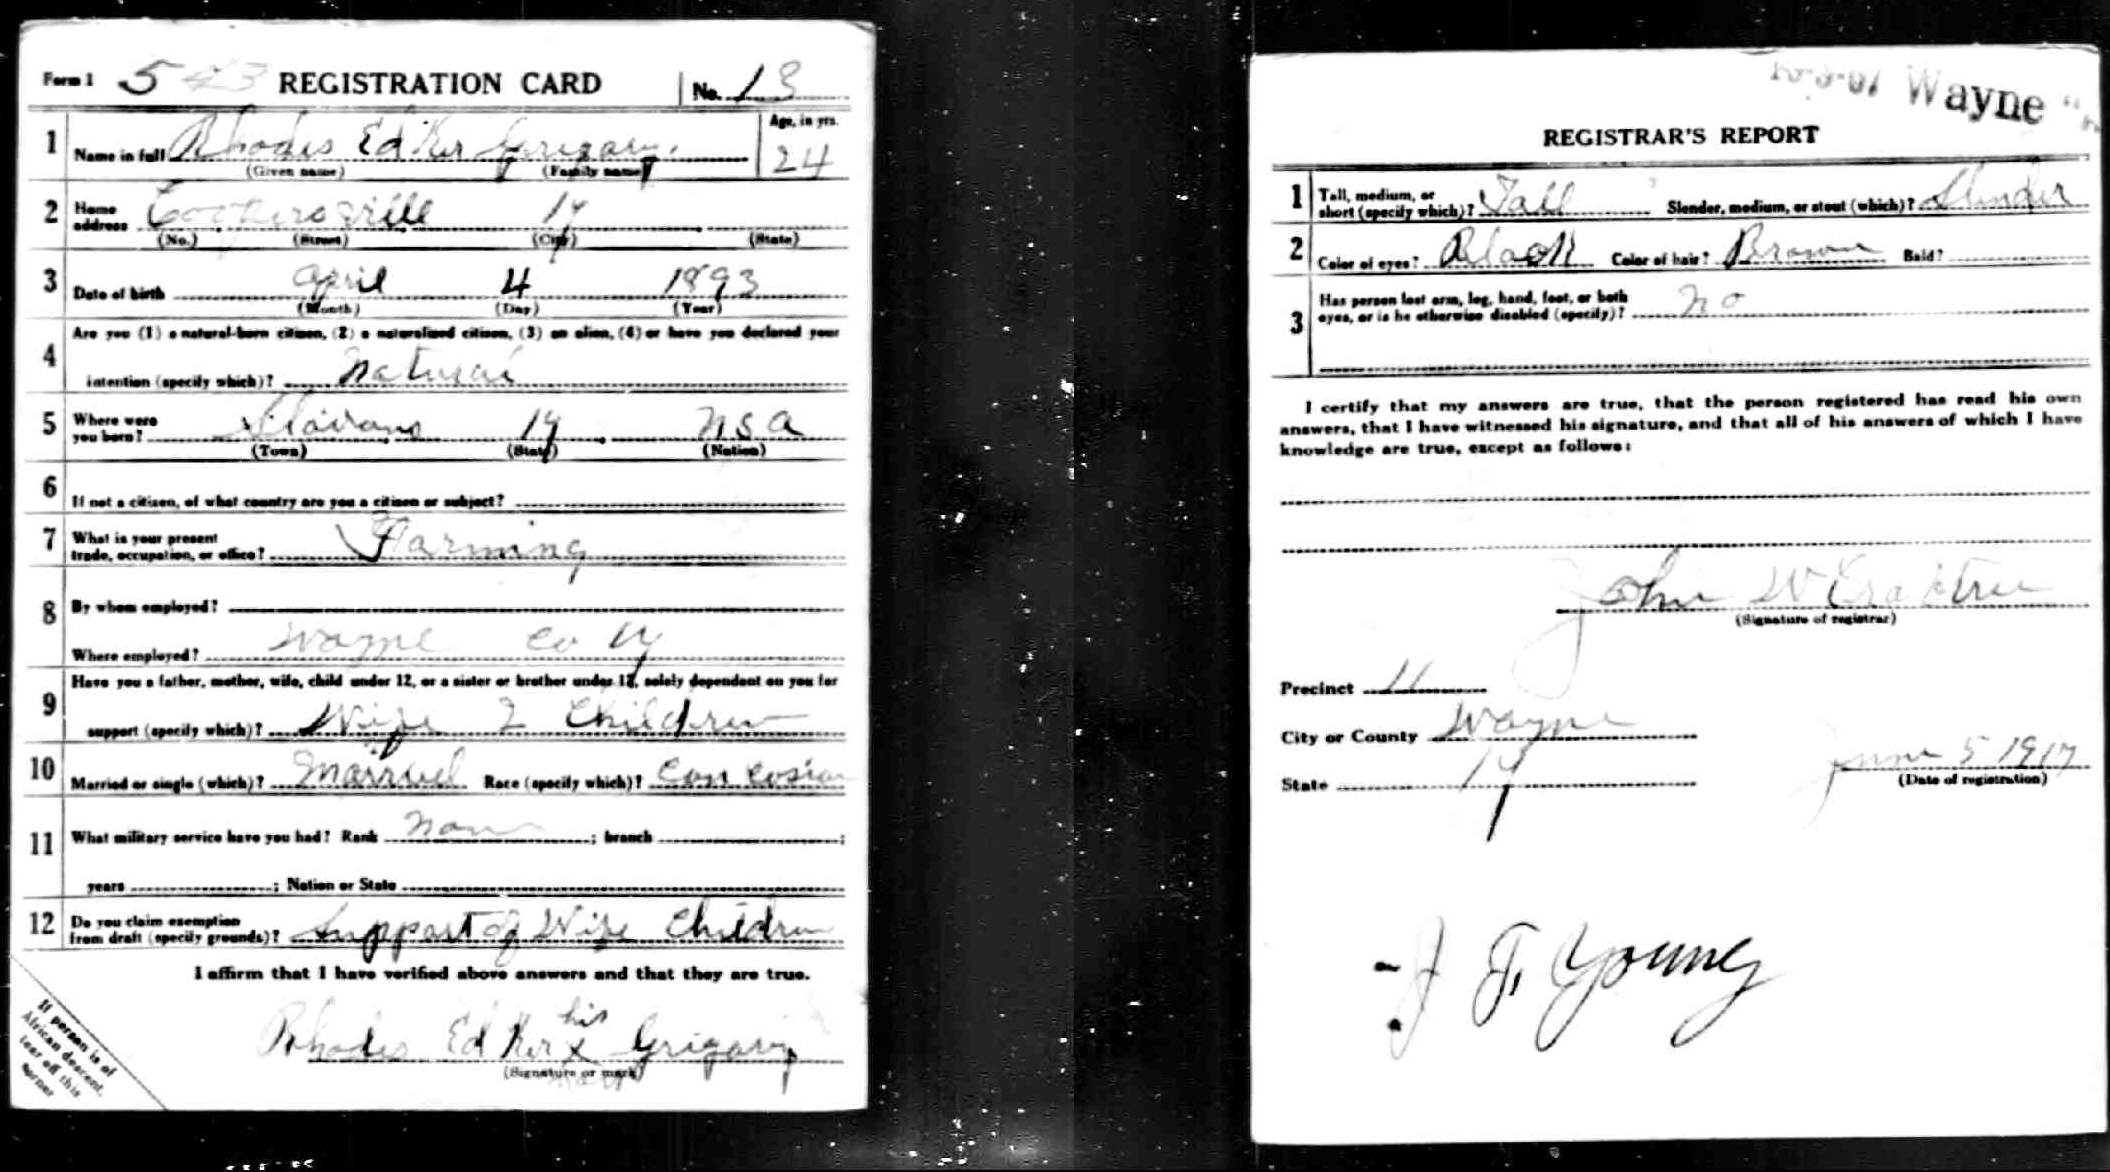 Form 1 543 REGISTRATION CARD No. 13
1 Name in full Rhodes Ed Ker Grigary. Age, in yrs. 24
(Given name) (Family name)
2 Home address Coopersville Ky
(No.) (Street) (City) (State)
3 Date of birth April 4 1893
(Month) (Day) (Year)
4 Are you (1) a natural-born citizen, (2) a naturalized citizen, (3) an alien, (4) or have you declared your
intention (specify which)? Natural
5 Where were you born? Slavans Ky USA
(Town) (State) (Nation)
6 If not a citizen, of what country are you a citizen or subject?
7 What is your present trade, occupation, or office? Farming
8 By whom employed?
Where employed? Wayne Co Ky
9 Have you a father, mother, wife, child under 12, or a sister or brother under 12, solely dependent on you for
support (specify which)? Wife 2 Children
10 Married or single (which)? Married Race (specify which)? Concosian
11 What military service have you had? Rank None ; branch ;
years ; Nation or State
12 Do you claim exemption from draft (specify grounds)? Support of Wife Children
I affirm that I have verified above answers and that they are true.
his
Rhodes Ed Ker X Grigary
(Signature or mark)
mark
If person is of
African descent,
tear off this
corner
Wayne
REGISTRAR'S REPORT
1 Tall, medium, or short (specify which)? Tall Slender, medium, or stout (which)? Slender
2 Color of eyes? Black Color of hair? Brown Bald?
3 Has person lost arm, leg, hand, foot, or both eyes, or is he otherwise disabled (specify)? No
I certify that my answers are true, that the person registered has read his own
answers, that I have witnessed his signature, and that all of his answers of which I have
knowledge are true, except as follows:
John W Crabtree
(Signature of registrar)
Precinct 11
City or County Wayne
State Ky June 5 1917
(Date of registration)
J F Young